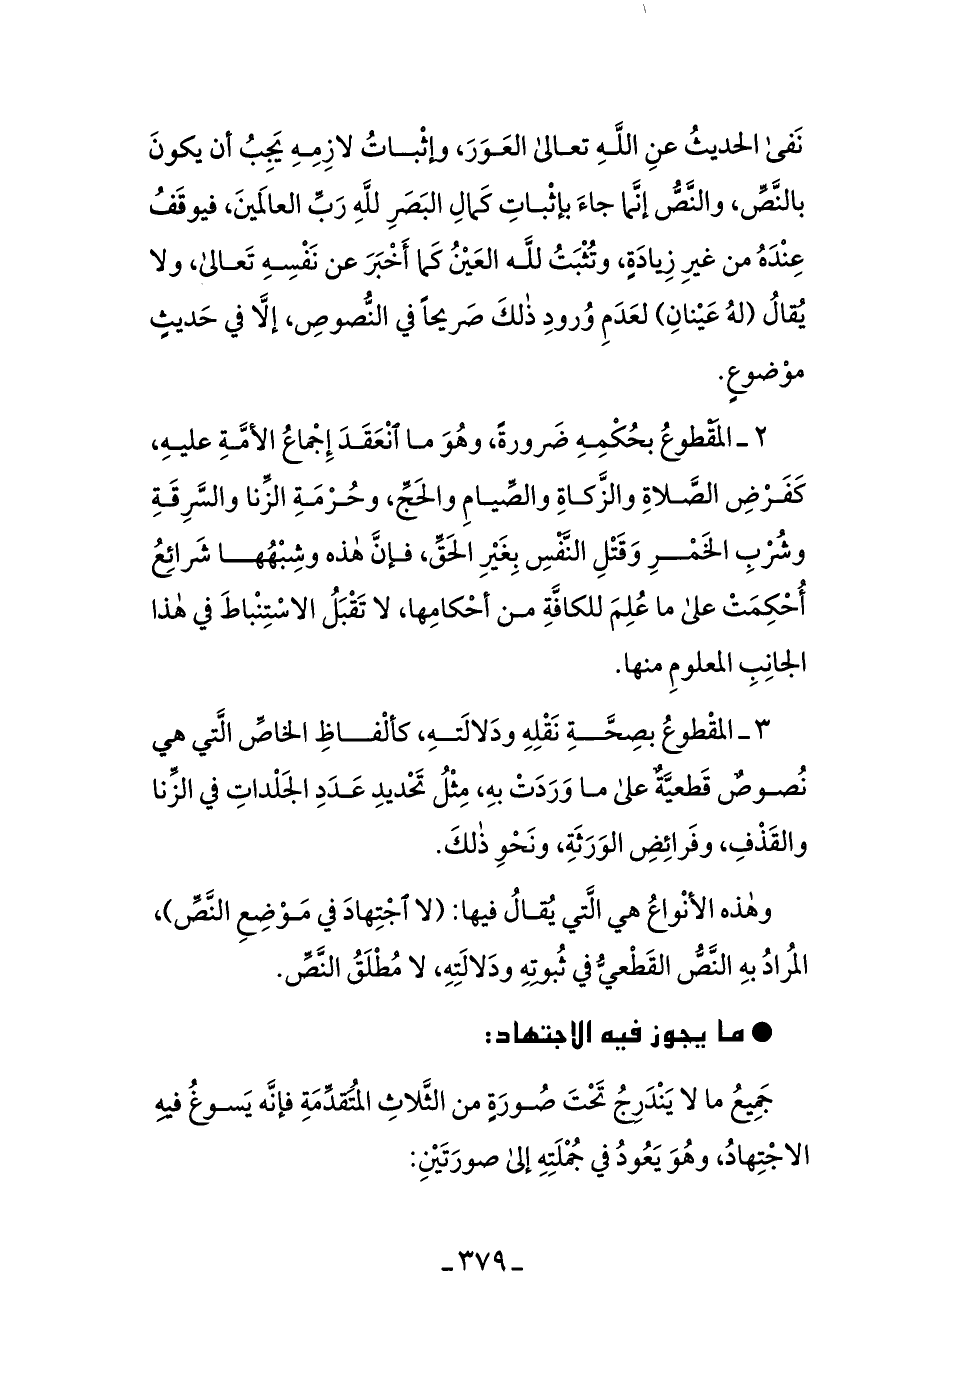 نَفىٰ الحديثُ عنِ اللَّهِ تعالىٰ العَوَرَ، وإثْباتُ لازِمِهِ يَجِبُ أن يكونَ
بالنَّصِّ، والنَّصُّ إنَّما جاءَ بإثْباتِ كَمالِ البَصَرِ للَّهِ رَبِّ العالَمينَ، فيوقَفُ
عِنْدَهُ من غيرِ زِيادَةٍ، وتُثْبَتُ للَّه العَيْنُ كَما أَخْبَرَ عن نَفْسِهِ تَعالىٰ، ولا
يُقالُ (لهُ عَيْنانِ) لعَدَمِ وُرودِ ذٰلكَ صَريحاً في النُّصوصِ، إلَّا في حَديثٍ
موْضوعٍ.
٢ ـ المَقْطوعُ بحُكْمِهِ ضَرورةً، وهُوَ ما ٱنْعَقَدَ إِجْماعُ الأمَّةِ عليهِ،
كَفَرْضِ الصَّلاةِ والزَّكاةِ والصِّيامِ والحَجِّ، وحُرْمَةِ الزِّنا والسَّرِقَةِ
وشُرْبِ الخَمْرِ وَقَتْلِ النَّفْسِ بِغَيْرِ الحَقِّ، فإنَّ هٰذه وشِبْهُها شَرائعُ
أُحْكِمَتْ علىٰ ما عُلِمَ للكافَّةِ من أحْكامِها، لا تَقْبَلُ الاسْتِنْباطَ في هٰذا
الجانِبِ المعلومِ منها.
٣ ـ المقْطوعُ بصِحَّةِ نَقْلِهِ ودَلالَتِهِ، كألْفاظِ الخاصِّ الَّتي هي
نُصوصٌ قَطعيَّةٌ علىٰ ما وَرَدَتْ بهِ، مِثْلُ تَحْديدِ عَدَدِ الجَلْداتِ في الزِّنا
والقَذْفِ، وفَرائِضِ الوَرَثَةِ، ونَحْوِ ذٰلكَ.
وهٰذه الأنْواعُ هي الَّتي يُقالُ فيها: (لا ٱجْتِهادَ في مَوْضِعِ النَّصِّ)،
المُرادُ بهِ النَّصُّ القَطْعيُّ في ثُبوتِهِ ودَلالَتِهِ، لا مُطْلَقُ النَّصِّ.
● ما يجوز فيه الاجتهاد:
جَميعُ ما لا يَنْدَرِجُ تَحْتَ صُورَةٍ من الثَّلاثِ المُتَقدِّمَةِ فإنَّه يَسوغُ فيهِ
الاجْتِهادُ، وهُوَ يَعُودُ في جُمْلَتِهِ إلىٰ صورَتَيْنِ:
ـ ٣٧٩ ـ